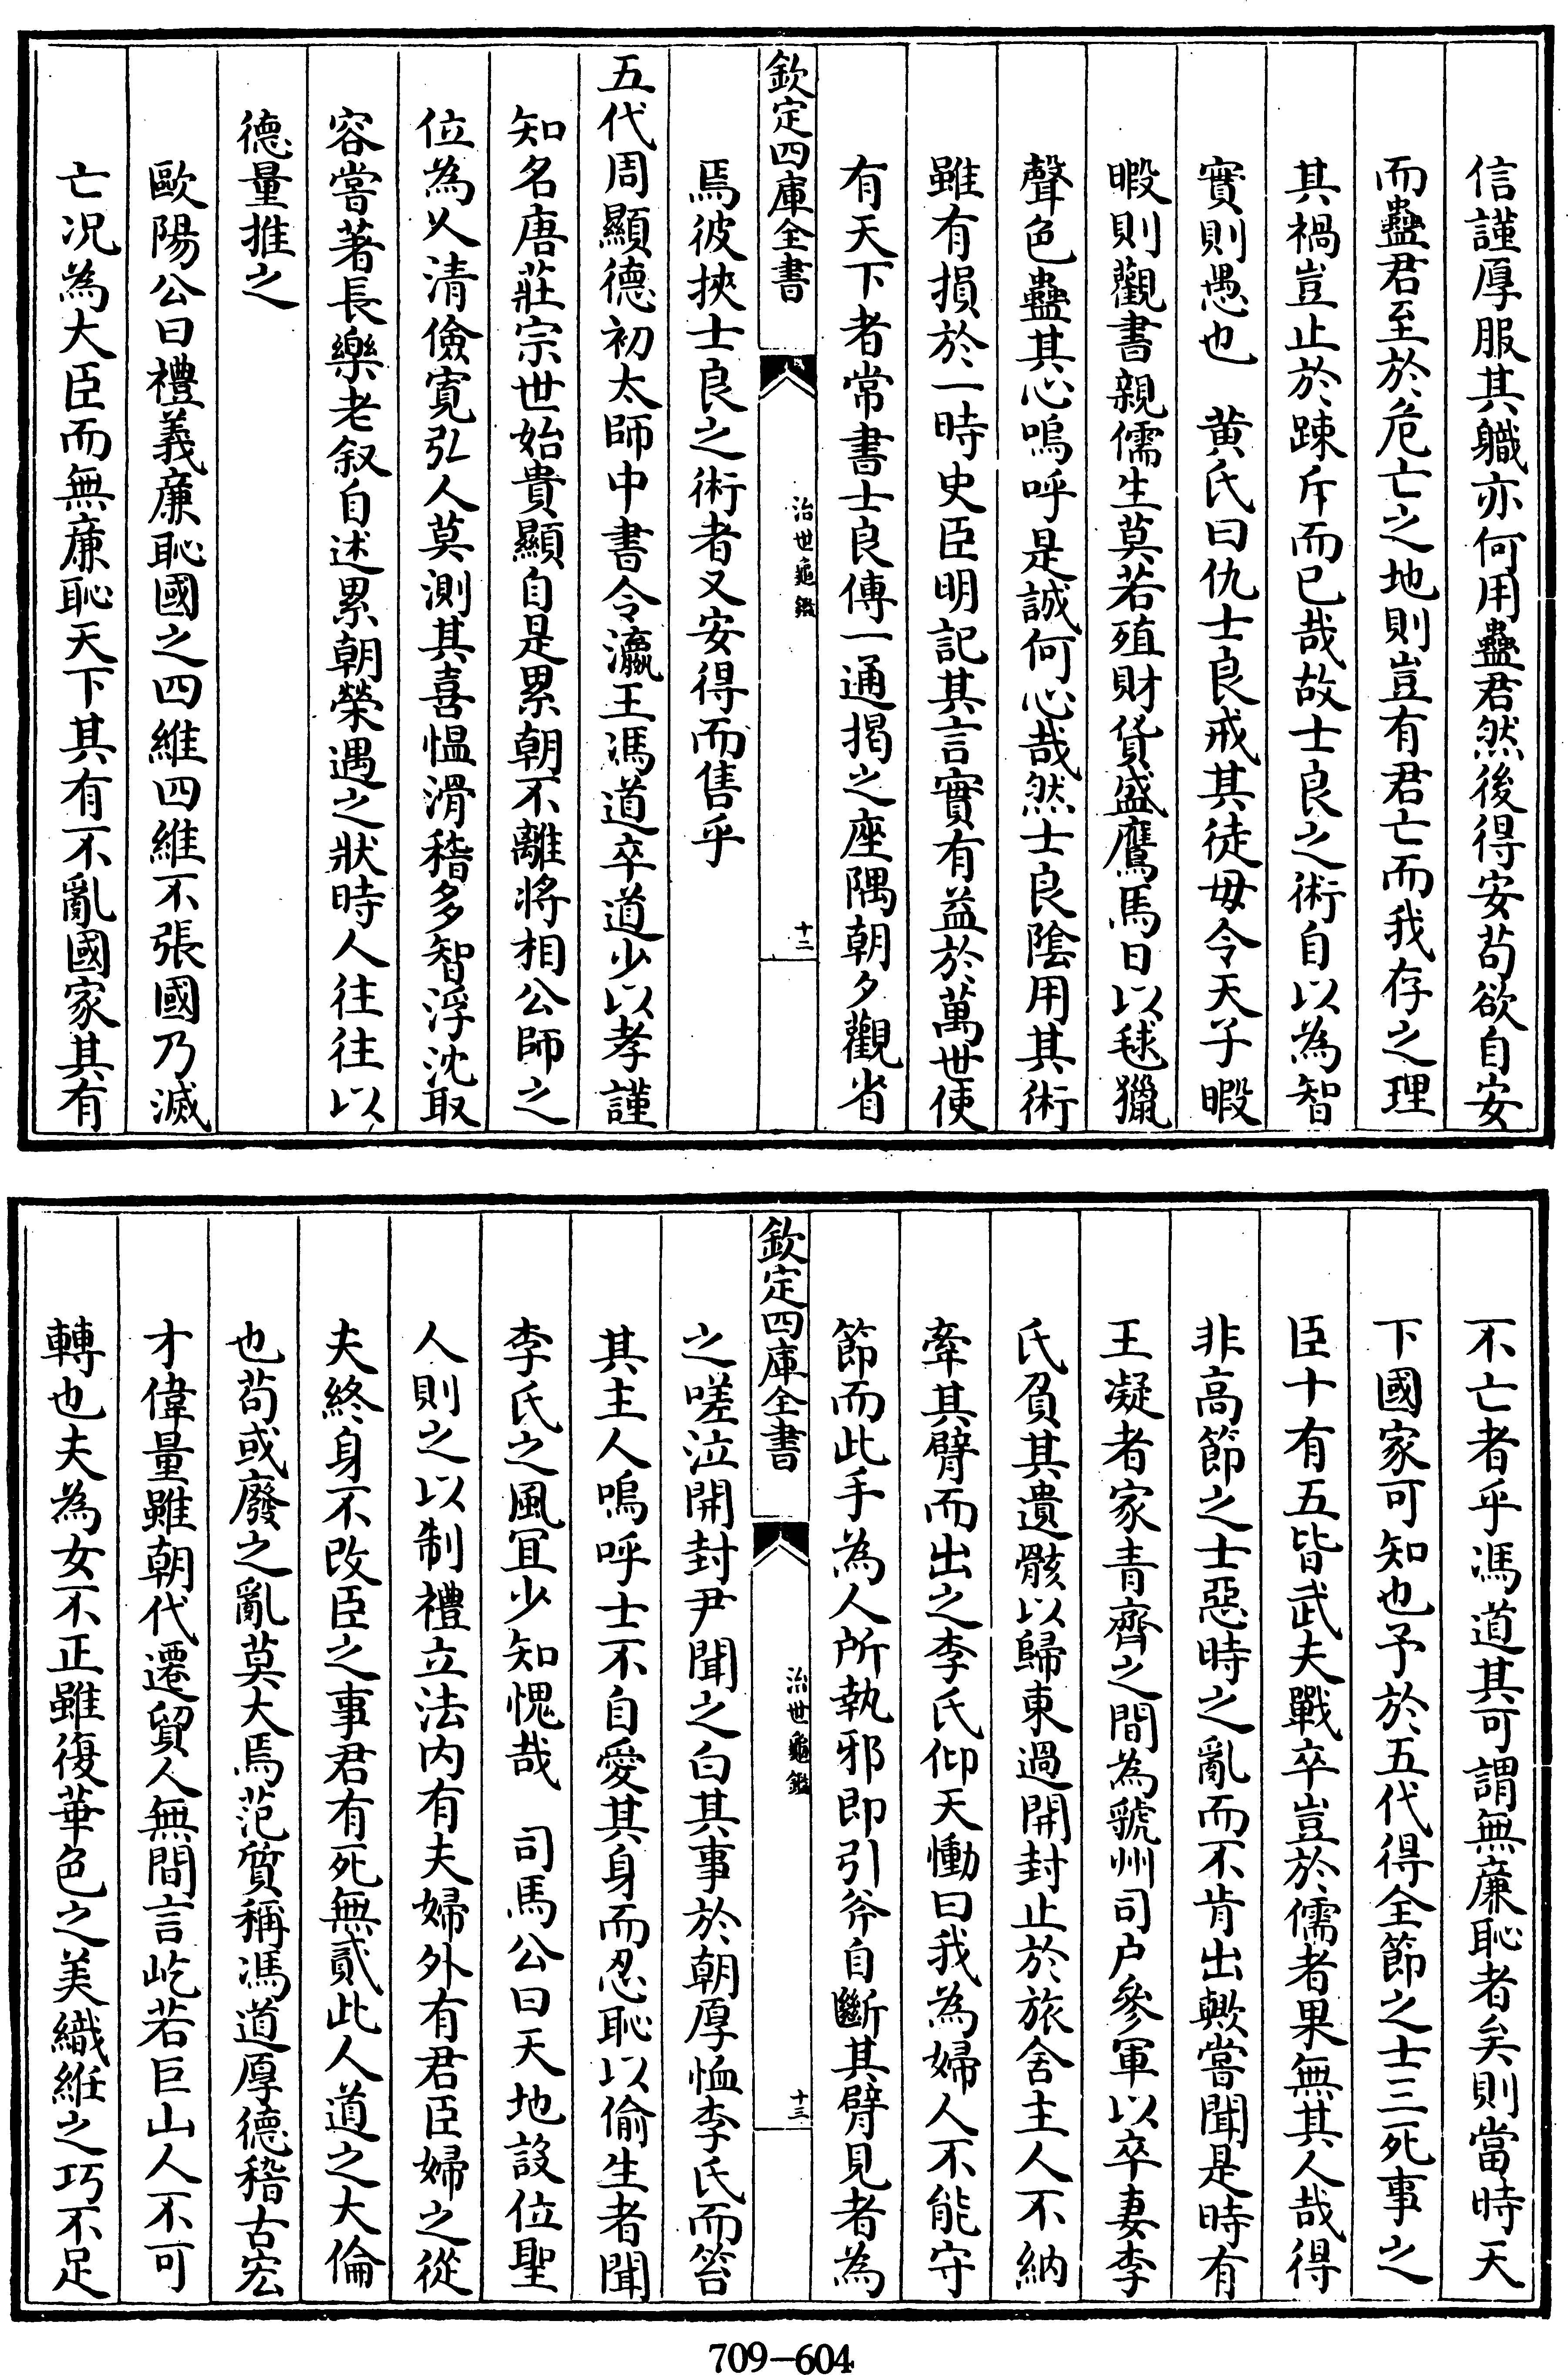 信謹厚服其職亦何用蠱君然後得安茍欲自安
而蠱君至於危亡之地則豈有君亡而我存之理
其禍豈止於踈斥而已哉故士良之術自以為智
實則愚也　黄氏曰仇士良戒其徒毋令天子暇
暇則觀書親儒生莫若殖財貨盛鷹馬日以毬獵
聲色蠱其心嗚呼是誠何心哉然士良隂用其術
雖有損於一時史臣明記其言實有益於萬世使
有天下者常書士良傳一通揭之座隅朝夕觀省
欽定四庫全書
治世龜鑑
十二
焉彼挾士良之術者又安得而售乎
五代周顯德初太師中書令瀛王馮道卒道少以孝謹
知名唐莊宗世始貴顯自是累朝不離將相公師之
位為人清儉寛弘人莫測其喜愠滑稽多智浮沈取
容嘗著長樂老叙自述累朝榮遇之狀時人往往以
德量推之
歐陽公曰禮義㢘恥國之四維四維不張國乃滅
亡況為大臣而無㢘恥天下其有不亂國家其有
不亡者乎馮道其可謂無㢘恥者矣則當時天
下國家可知也予於五代得全節之士三死事之
臣十有五皆武夫戰卒豈於儒者果無其人哉得
非高節之士惡時之亂而不肯出歟嘗聞是時有
王凝者家青齊之間為虢州司户參軍以卒妻李
氏負其遺骸以歸東過開封止於旅舍主人不納
牽其臂而出之李氏仰天慟曰我為婦人不能守
節而此手為人所執邪即引斧自斷其臂見者為
欽定四庫全書
治世龜鑑
十三
之嗟泣開封尹聞之白其事於朝厚恤李氏而笞
其主人嗚呼士不自愛其身而忍恥以偷生者聞
李氏之風宜少知愧哉　司馬公曰天地設位聖
人則之以制禮立法内有夫婦外有君臣婦之從
夫終身不改臣之事君有死無貳此人道之大倫
也茍或廢之亂莫大焉范質稱馮道厚德稽古宏
才偉量雖朝代遷貿人無間言屹若巨山人不可
轉也夫為女不正雖復華色之美織絍之巧不足
709-604